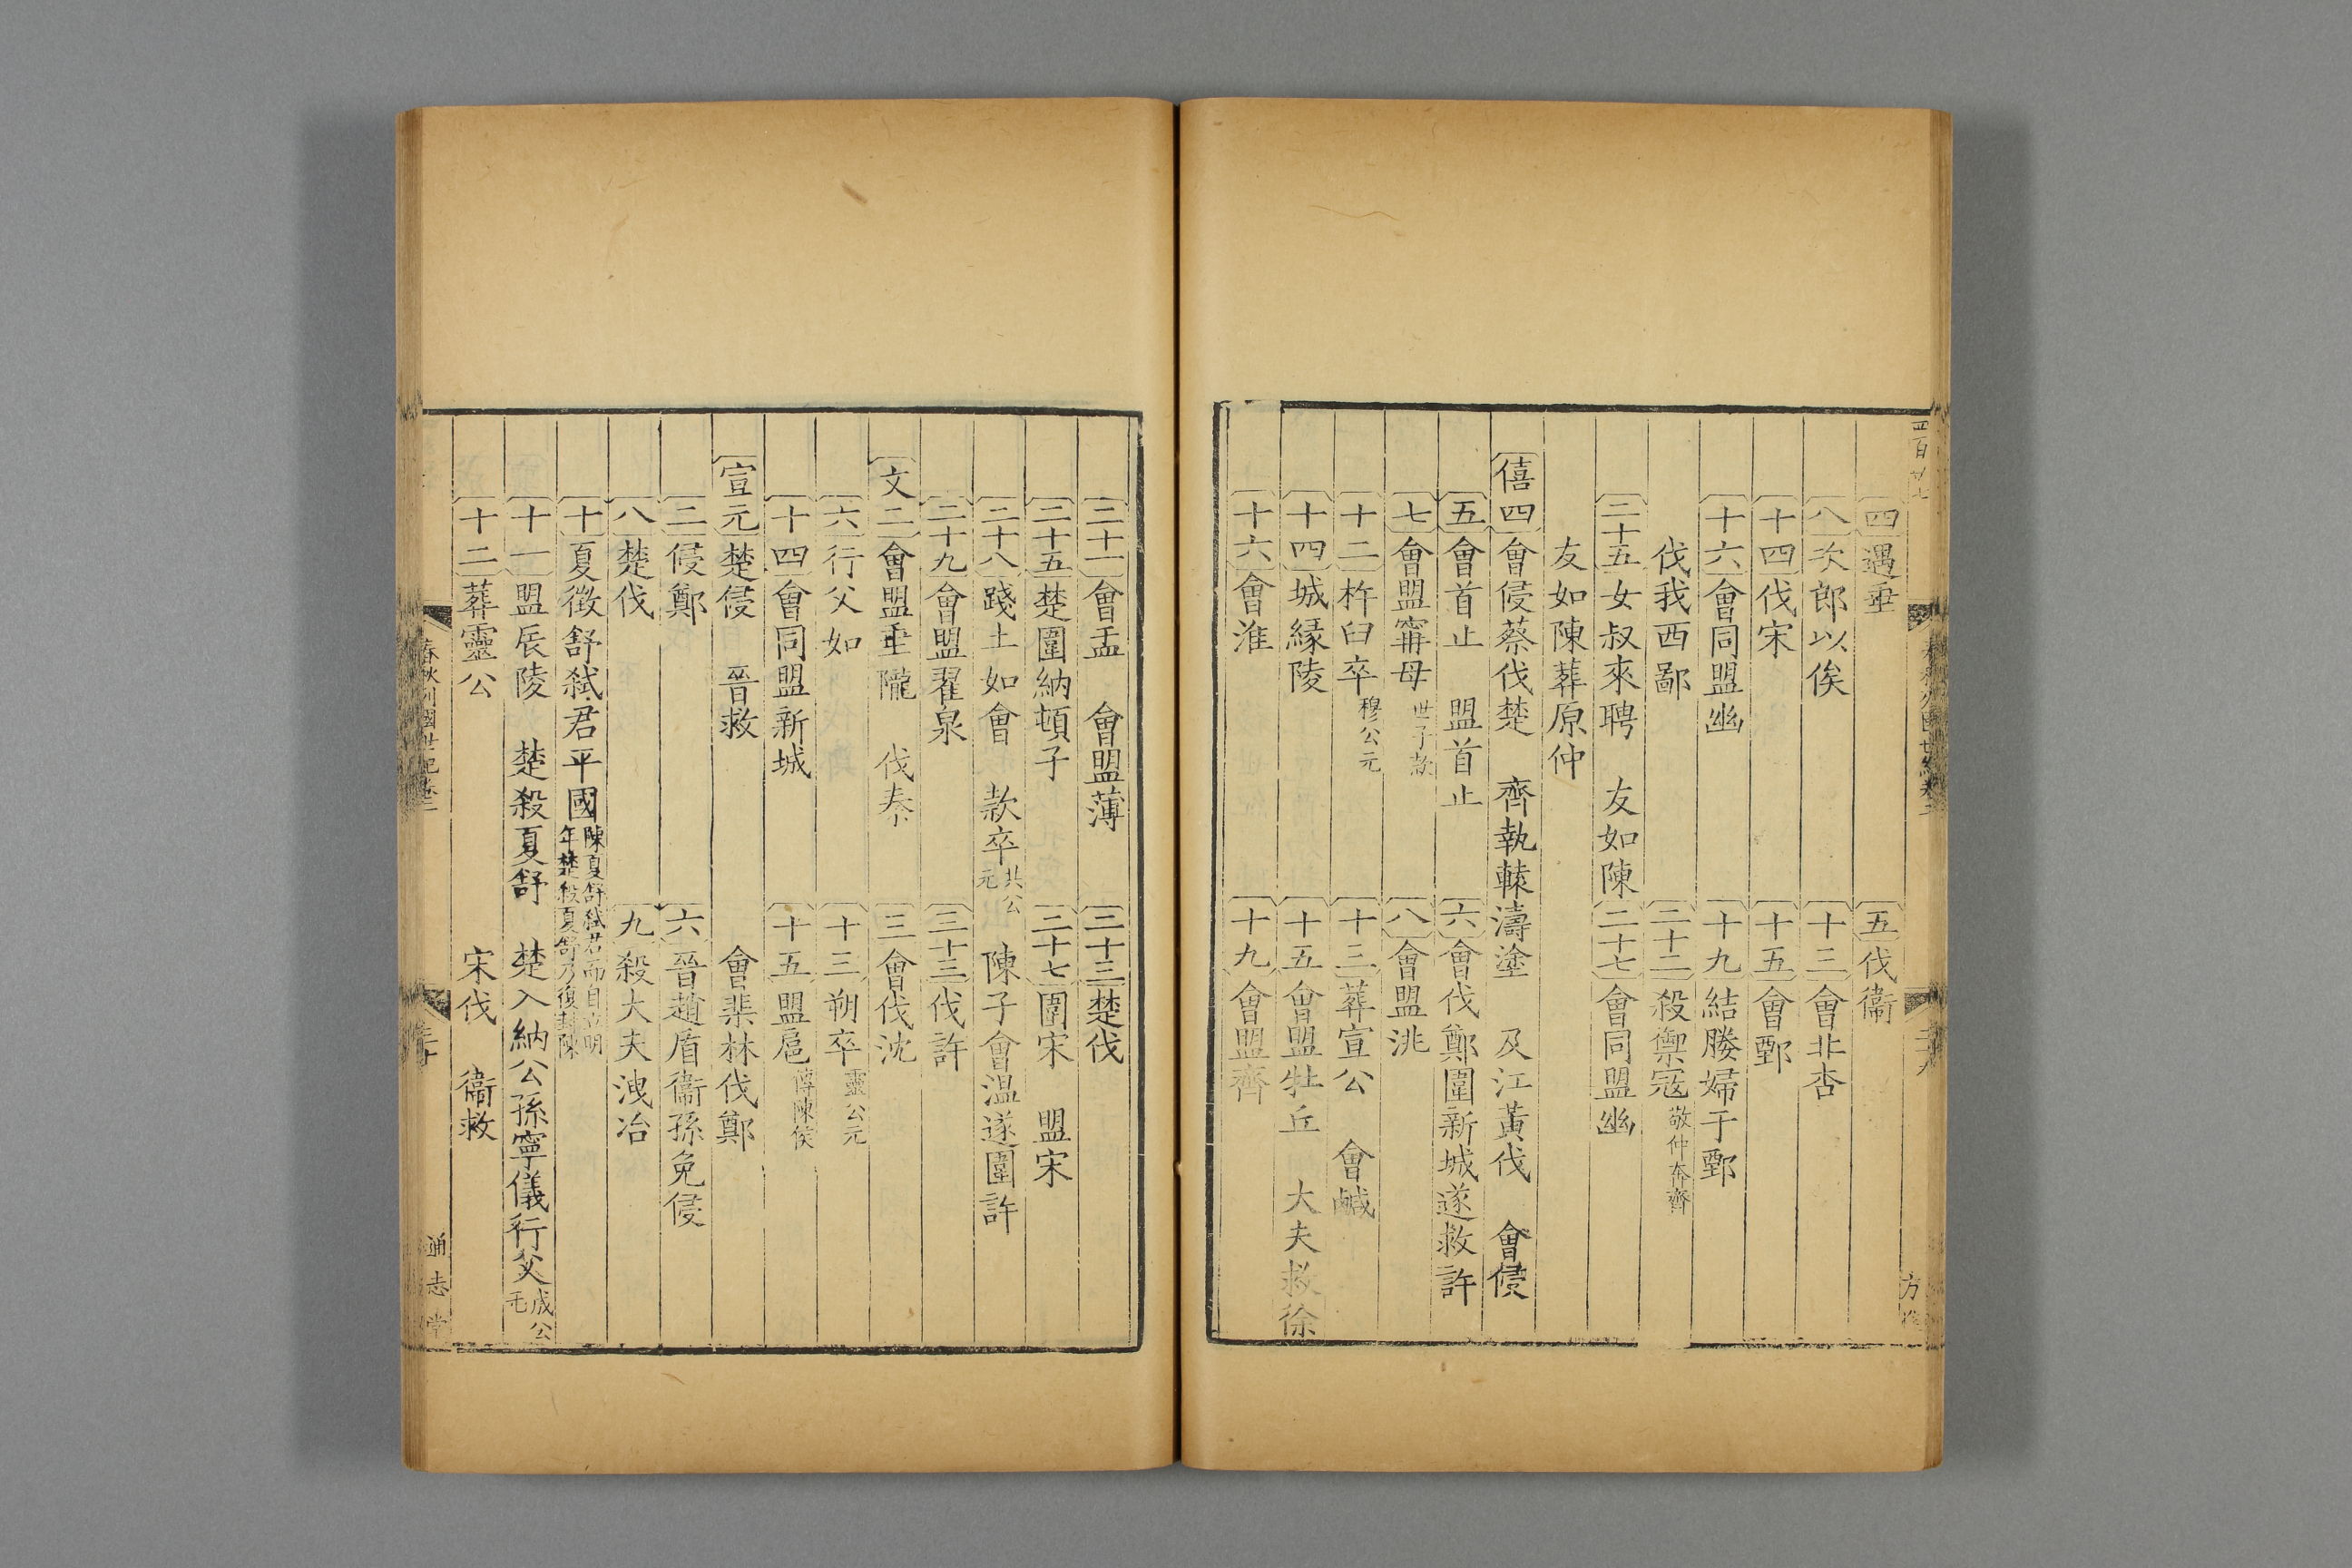 四遇垂 五伐衞
八次郎以俟 十三會非杏
十四伐宋 十五會鄄
十六會同盟幽 十九結媵婦于鄄
伐我西鄙 二十二殺禦寇敬仲奔齊
二十五女叔來聘 友如陳 二十七會同盟幽
友如陳葬原仲
僖四會侵蔡伐楚 齊執轅濤塗 及江黃伐 會侵
五會首止 盟首止 六會伐鄭圍新城遂救許
七會盟甯母世子款 八會盟洮
十二杵臼卒穆公元 十三葬宣公 會鹹
十四城緣陵 十五會盟牡丘 大夫救徐
十六會淮 十九會盟齊
二十一會盂 會盟薄 二十三楚伐
二十五楚圍納頓子 二十七圍宋 盟宋
二十八踐土如會 款卒共公元 陳子會溫遂圍許
二十九會盟翟泉 三十三伐許
文二會盟垂隴 伐秦 三會伐沈
六行父如 十三朔卒靈公元
十四會同盟新城 十五盟扈傳陳侯
宣元楚侵 晉救 會棐林伐鄭
二侵鄭 六晉趙盾衞孫免侵
八楚伐 九殺大夫洩冶
十夏徵舒弑君平國陳夏舒弑君而自立明年楚殺夏舒乃復封陳
十一盟辰陵 楚殺夏舒 楚入納公孫寧儀行父成公元
十二葬靈公 宋伐 衞救
春秋列國世紀卷二
三十
通志堂